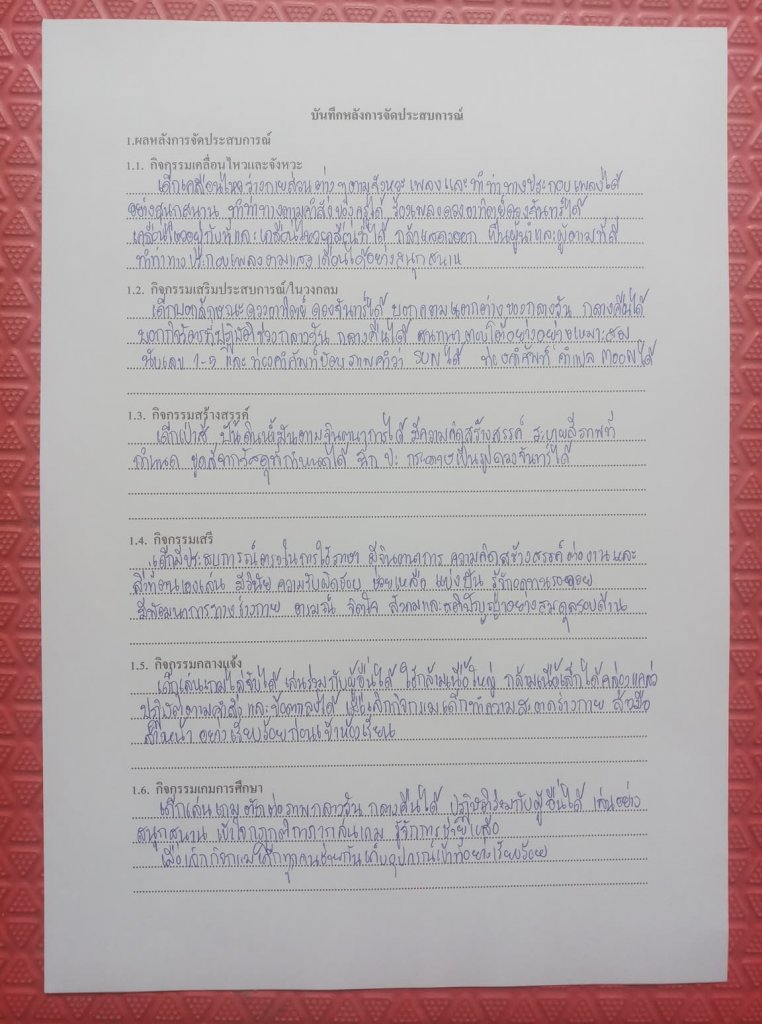 บันทึกหลังการจัดประสบการณ์
1.ผลหลังการจัดประสบการณ์
1.1. กิจกรรมเคลื่อนไหวและจังหวะ
เด็กเคลื่อนไหวร่างกายส่วนต่างๆตามจังหวะเพลงและทำท่าทางประกอบเพลงได้
อย่างสนุกสนาน ทำท่าทางตามคำสั่งของครูได้ ร้องเพลงดวงอาทิตย์ดวงจันทร์ได้
เคลื่อนไหวอยู่กับที่และเคลื่อนไหวเคลื่อนที่ได้ กล้าแสดงออก เป็นผู้นำและผู้ตามที่ดี
ทำท่าทางประกอบเพลงงามแสงเดือนได้อย่างสนุกสนาน
1.2. กิจกรรมเสริมประสบการณ์/ในวงกลม
เด็กบอกลักษณะดวงอาทิตย์ ดวงจันทร์ได้ บอกความแตกต่างของกลางวัน กลางคืนได้
บอกกิจวัตรที่ปฏิบัติช่วงกลางวัน กลางคืนได้ สนทนาตอบโต้อย่างเหมาะสม
นับเลข 1-5 และท่องคำศัพท์ประกอบภาพคำว่า SUN ได้ ท่องคำศัพท์ คำแปล MOON ได้
1.3. กิจกรรมสร้างสรรค์
เด็กเป่าสี ปั้นดินน้ำมันตามจินตนาการได้ มีความคิดสร้างสรรค์ ระบายสีภาพที่
กำหนด ขูดสีจากวัสดุที่กำหนดได้ ฉีก ปะ กระดาษเป็นรูปดวงจันทร์ได้
1.4. กิจกรรมเสรี
เด็กมีประสบการณ์ตรงในการใช้ภาษา มีจินตนาการ ความคิดสร้างสรรค์ต่องานและ
สิ่งที่ตนเองเล่น มีวินัย ความรับผิดชอบ ช่วยเหลือ แบ่งปัน รู้จักอดทนรอคอย
มีพัฒนาการทางร่างกาย อารมณ์ จิตใจ สังคมและสติปัญญาอย่างสมดุลรอบด้าน
1.5. กิจกรรมกลางแจ้ง
เด็กเล่นเกมไล่จับได้ เล่นร่วมกับผู้อื่นได้ ใช้กล้ามเนื้อใหญ่ กล้ามเนื้อเล็กได้คล่องแคล่ว
ปฏิบัติตามคำสั่งและข้อตกลงได้ เมื่อเลิกกิจกรรมเด็กทำความสะอาดร่างกาย ล้างมือ
ล้างหน้า อย่างเรียบร้อยก่อนเข้าห้องเรียน
1.6. กิจกรรมเกมการศึกษา
เด็กเล่นเกมจิ๊กต่อภาพกลางวัน กลางคืนได้ ปฏิบัติร่วมกับผู้อื่นได้ เล่นอย่าง
สนุกสนาน เข้าใจกฎกติกาการเล่นเกม รู้จักการช่วยเหลือ
เมื่อเลิกกิจกรรมเด็กทุกคนช่วยกันเก็บอุปกรณ์เข้าที่อย่างเรียบร้อย